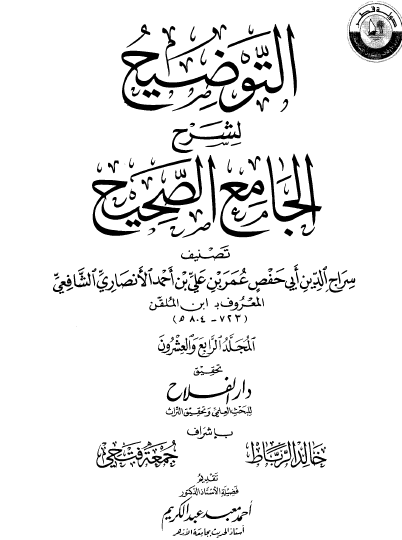 دولة قطر
التَّوضِيحُ
لِشَرْحِ
الجَامِعِ الصَّحِيحِ
تَصْنِيف
سِرَاجِ الدِّينِ أَبِي حَفْصٍ عُمَرَ بْنِ عَلِيِّ بْنِ أَحْمَدَ الأَنْصَارِيِّ الشَّافِعِيِّ
المَعْرُوفِ بِـ ابن المُلَقِّن
(٧٢٣ - ٨٠٤ هـ)
المُجَلَّدُ الرَّابِعُ وَالعِشْرُونَ
تحقِيق
دَار الفَلَاح
لِلبَحْثِ العِلمِيِّ وَتَحْقِيقِ التُّرَاثِ
بِإشرَاف
خَالِد الرَّبَّاط
جُمعَة فَتْحِي
تَقدِيمُ
فَضِيلَةِ الأُسْتَاذِ الدّكتُور
أحمَد مَعبَد عَبد الكَرِيم
أستاذ الحَديث بجَامعَة الأزهَر